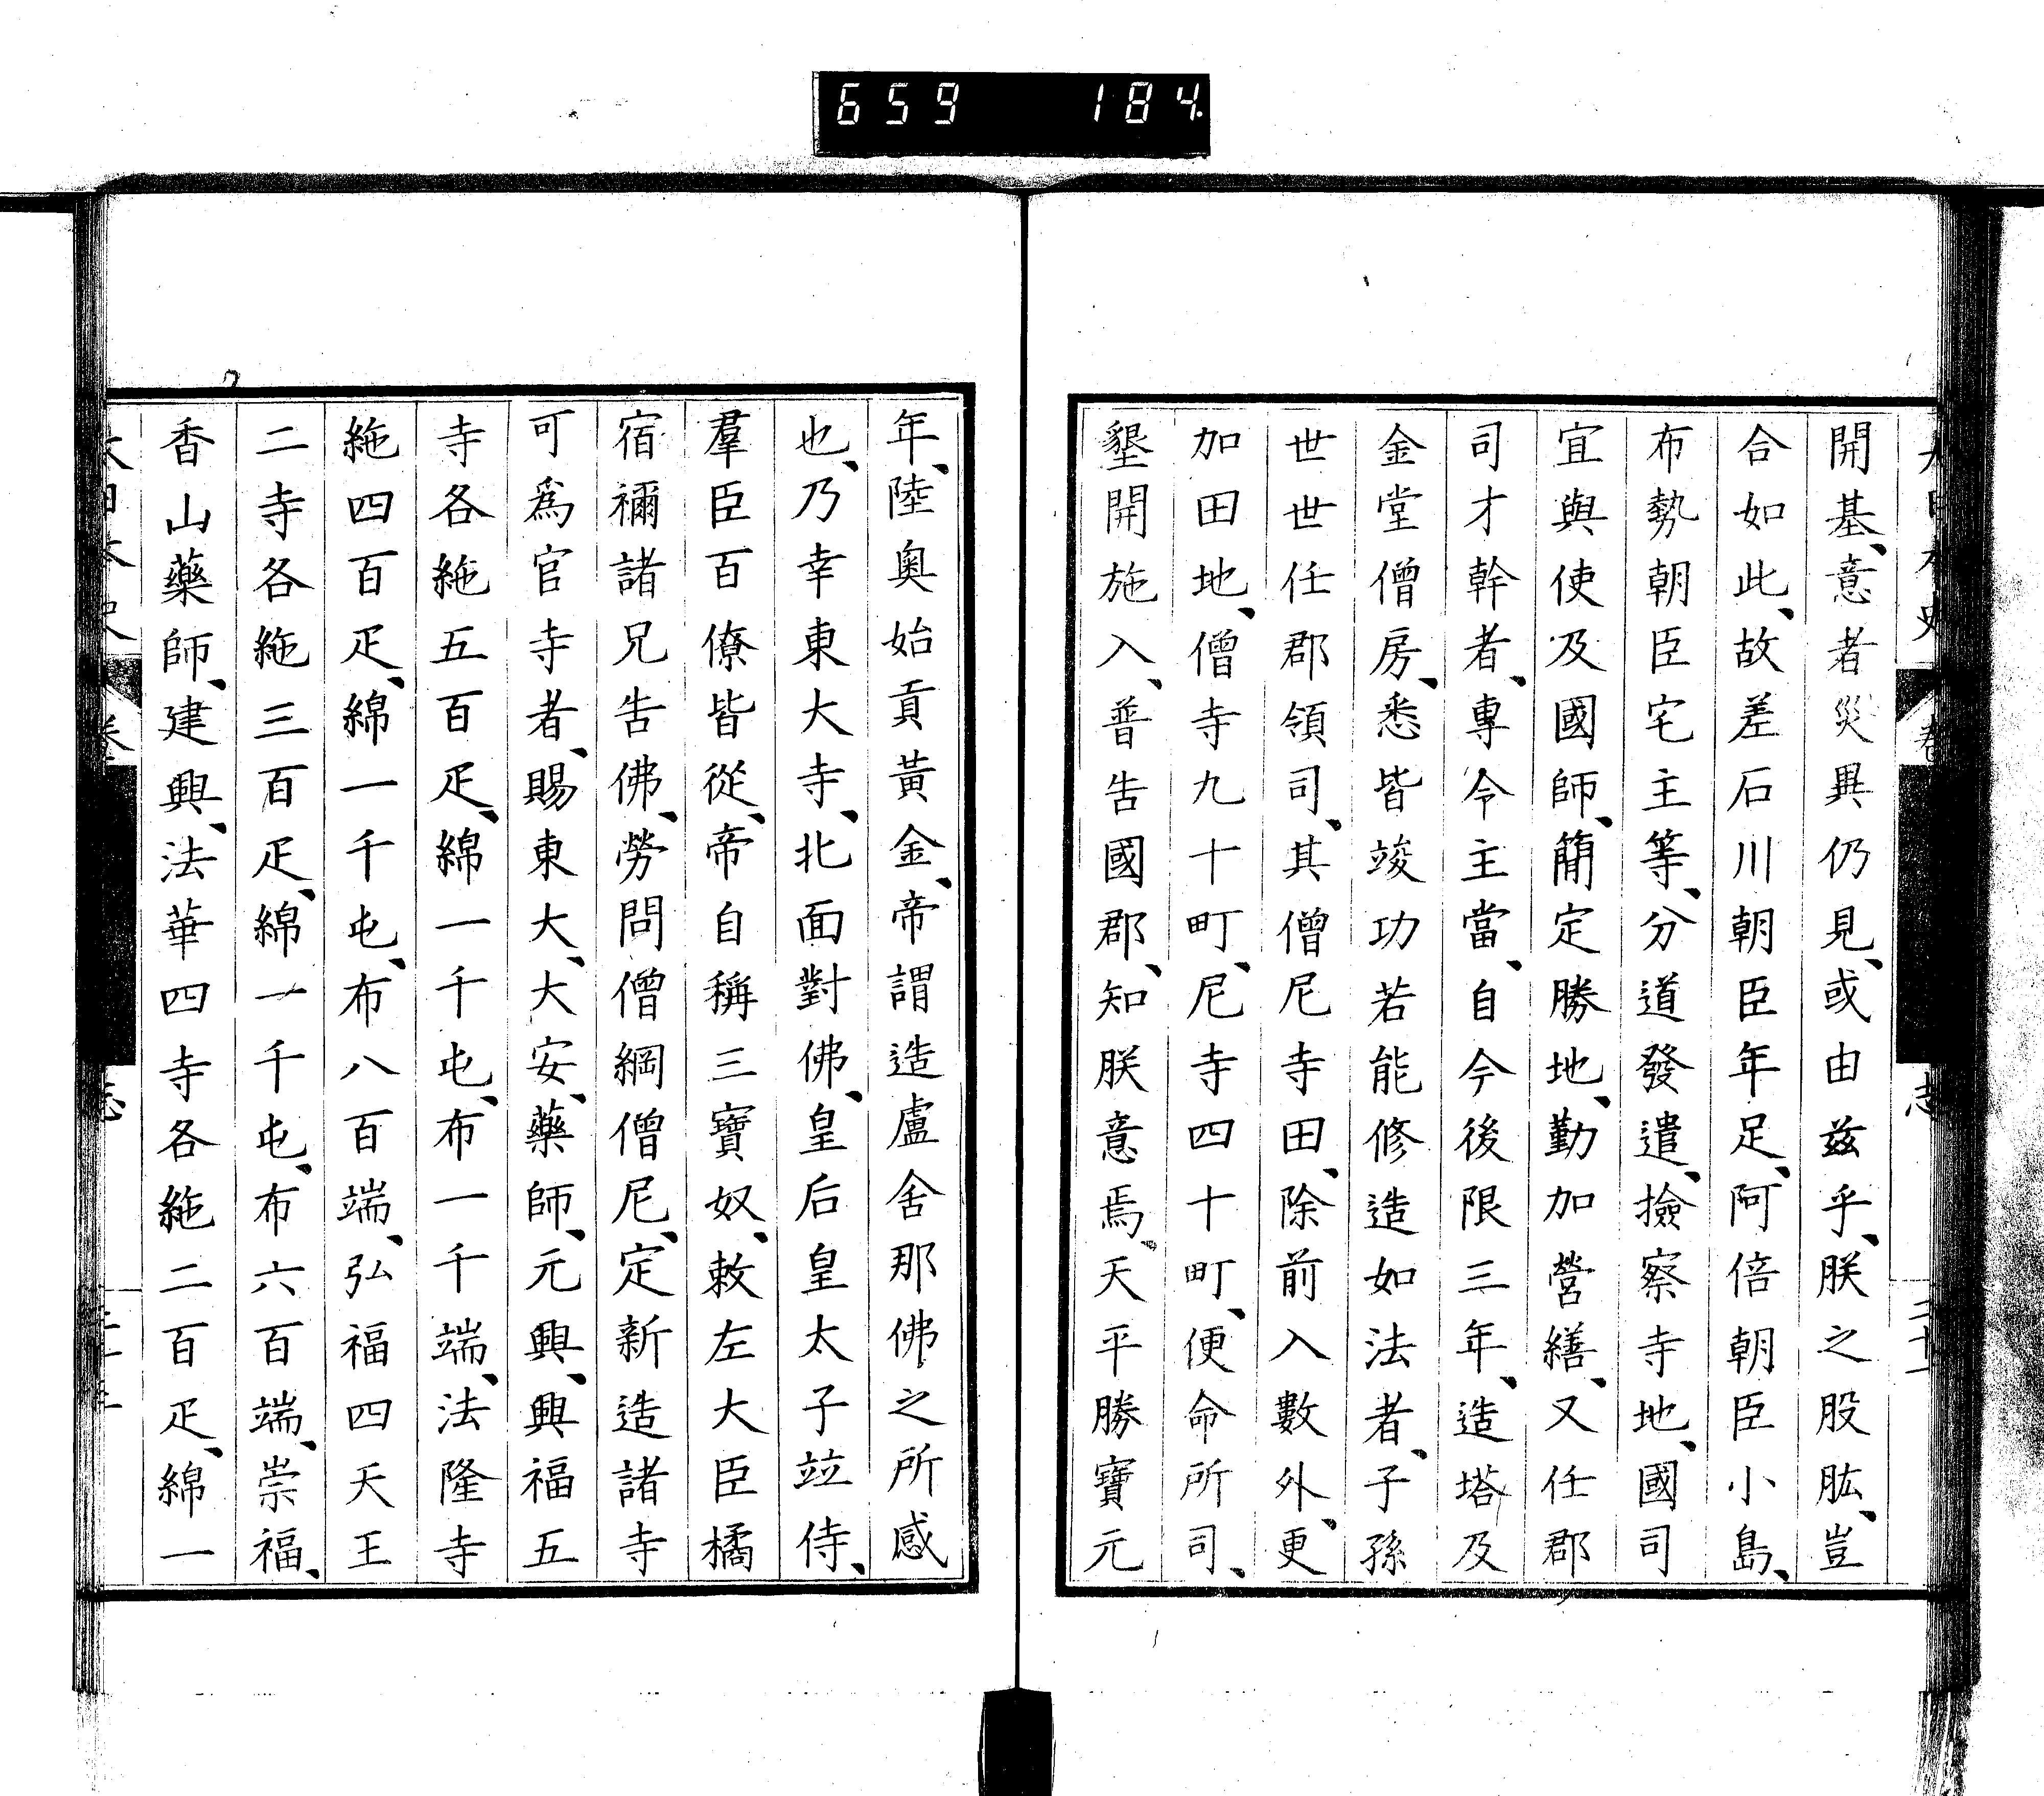 659 184
開基、意者災異仍見、或由茲乎、朕之股肱、豈
合如此、故差石川朝臣年足、阿倍朝臣小島、
布勢朝臣宅主等、分道發遣、撿察寺地、國司
宜與使及國師、簡定勝地、勤加營繕、又任郡
司才幹者、專令主當、自今後限三年、造塔及
金堂僧房、悉皆竣功若能修造如法者、子孫
世世任郡領司、其僧尼寺田、除前入數外、更
加田地、僧寺九十町、尼寺四十町、便命所司、
墾開施入、普告國郡、知朕意焉、天平勝寶元
年、陸奧始貢黃金、帝謂造盧舍那佛之所感
也、乃幸東大寺、北面對佛、皇后皇太子竝侍、
羣臣百僚皆從、帝自稱三寶奴、敕左大臣橘
宿禰諸兄告佛、勞問僧綱僧尼、定新造諸寺
可爲官寺者、賜東大、大安、藥師、元興、興福五
寺各絁五百疋、綿一千屯、布一千端、法隆寺
絁四百疋、綿一千屯、布八百端、弘福四天王
二寺各絁三百疋、綿一千屯、布六百端、崇福、
香山藥師、建興、法華四寺各絁二百疋、綿一